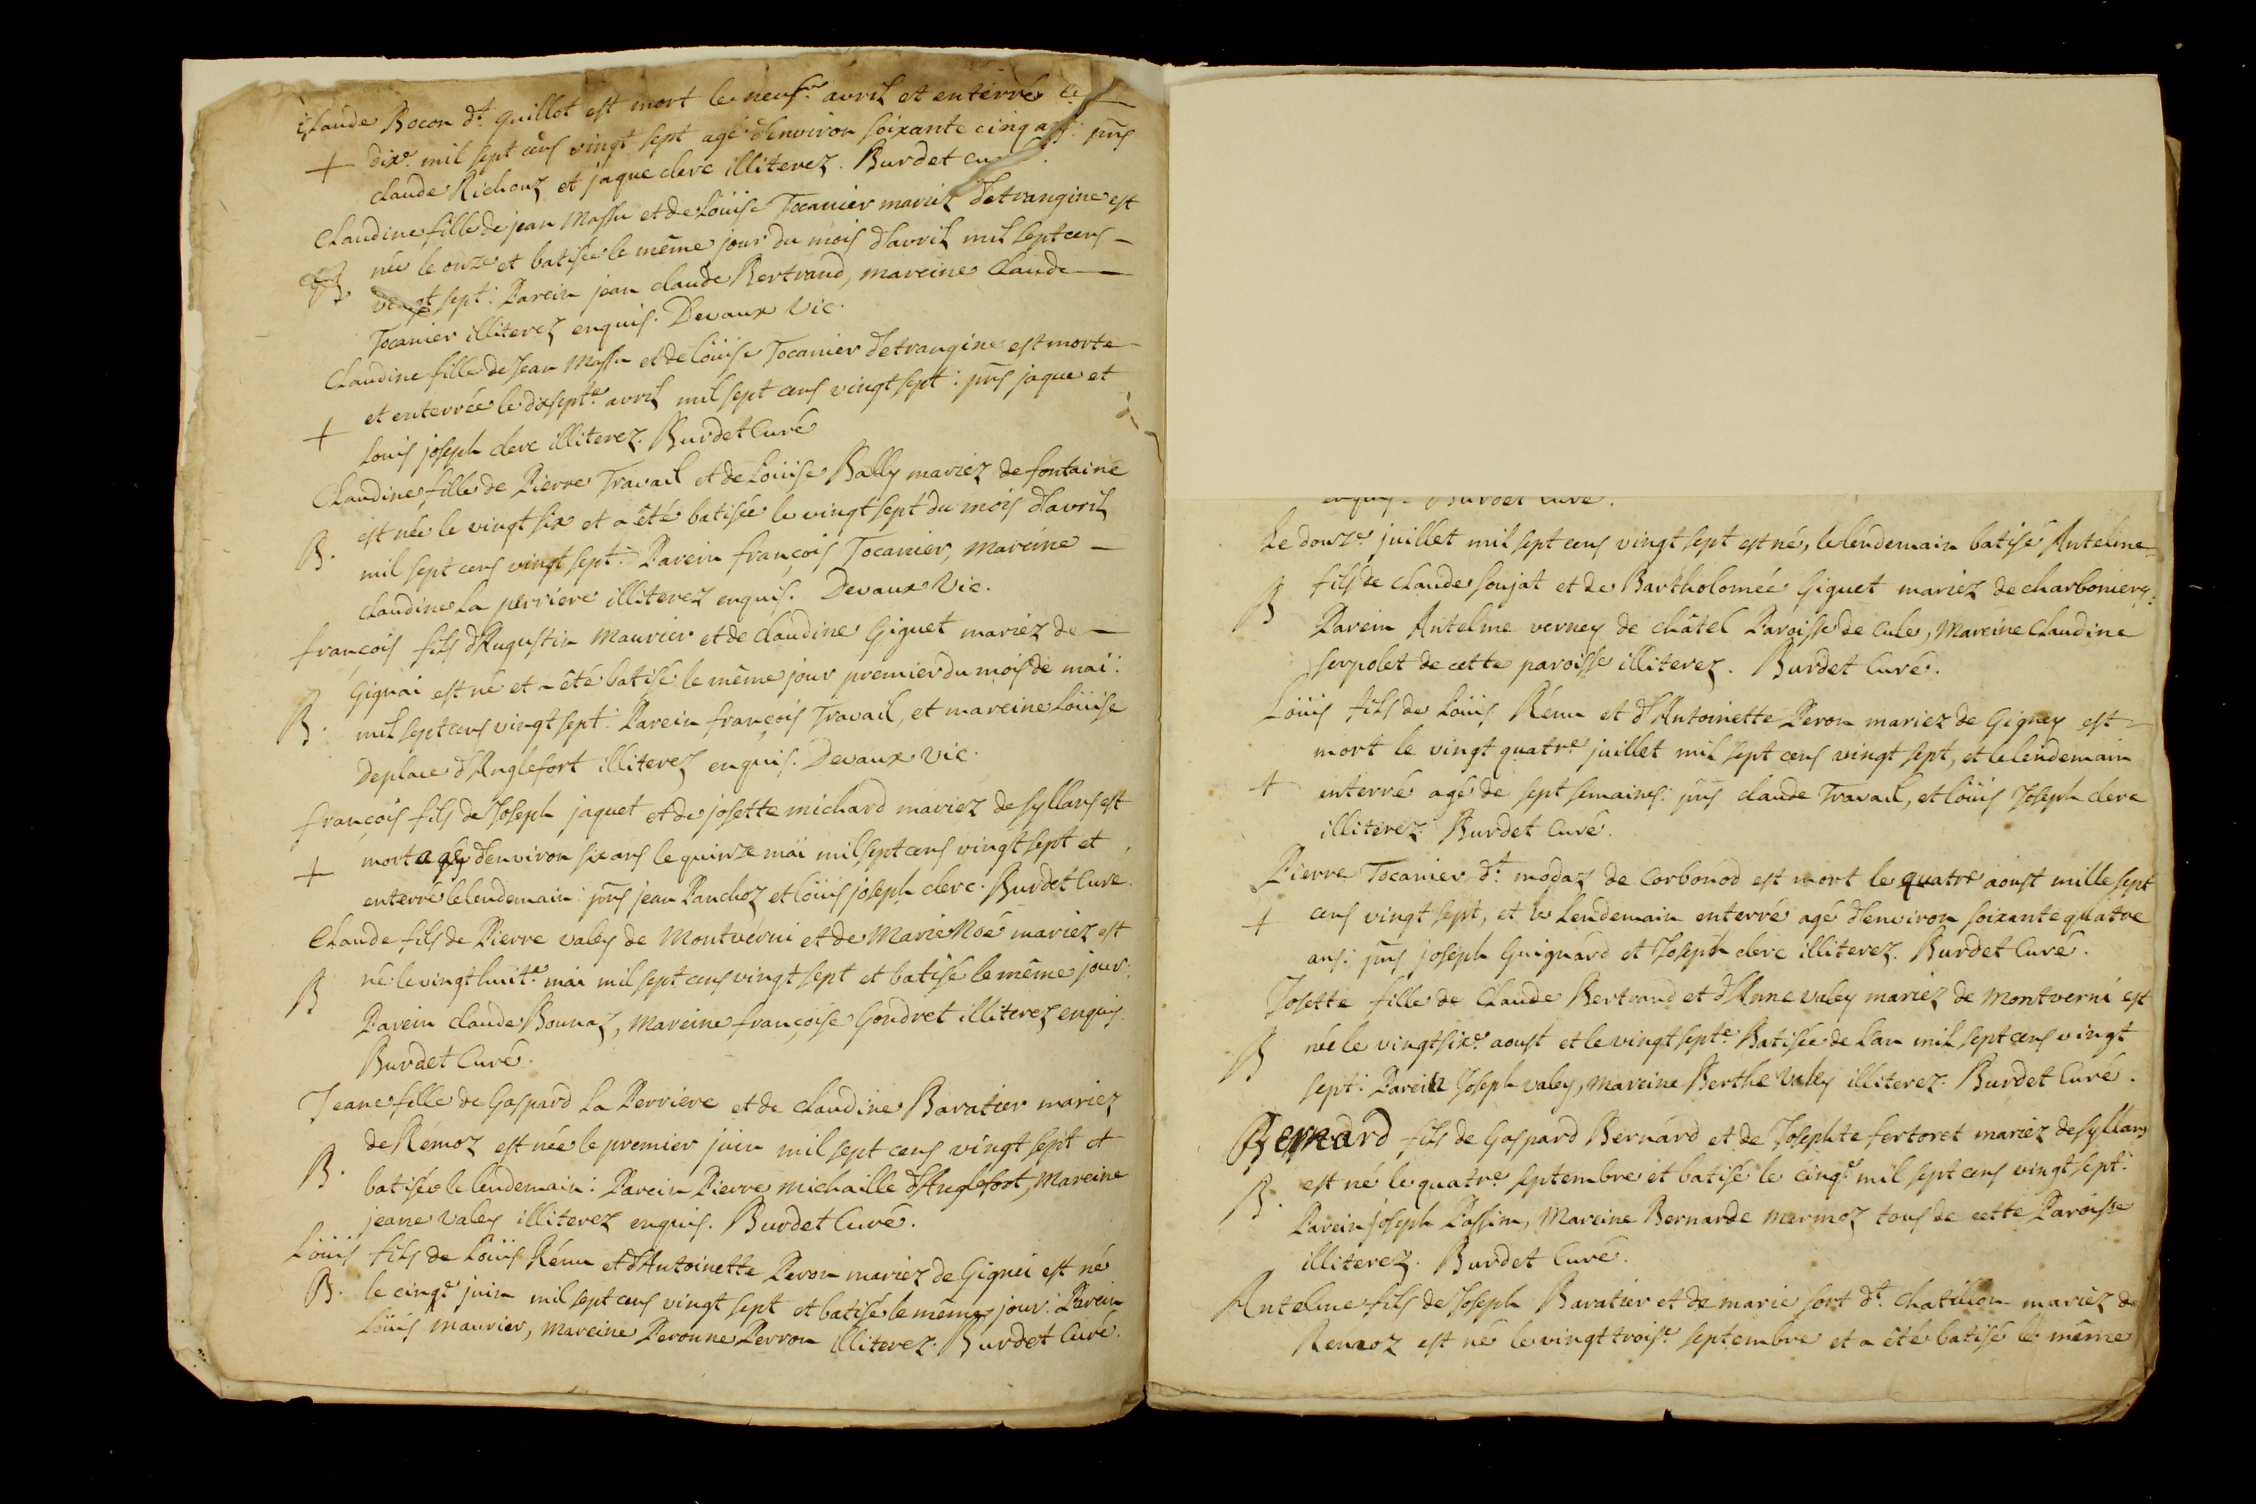 Claude Bocon dt. quillet est mort le neufe. avril et enterré le
+ dixe. mil sept cens vingt sept agé d'environ soixante cinq ans: pns
claude Richouz et jaque clerc illiterez. Burdet curé.
Claudine fille de jean Massu et de Loüise Tocanier mariez d'etrangine est
née le onze et batisée le même jour du mois d'avril mil sept cens —
B. vingt sept: Parein jean claude Bertrand, mareine Claude —
Tocanier illiterez enquis. Devaux Vic.
Claudine fille de Jean Massu et de Loüise Tocanier d'etrangine est morte
+ et enterrée le dixsepte. avril mil sept cens vingt sept: pns jaque et
Louis joseph clerc illiterez. Burdet Curé
Claudine fille de Pierre Travail et de Loüise Bally mariez de fontaine
B. est née le vingt six et a été batisée le vingt sept du mois d'avril
mil sept cens vingt sept: Parein françois Tocanier, mareine —
claudine La perriere illiterez enquis. Devaux Vic.
françois fils d'Augustin Maurier et de claudine Giguet mariez de —
Gignai est né et a été batisé le même jour premier du mois de mai:
B. mil sept cens vingt sept: Parein françois Travail, et mareine Loüise
Deplace d'Anglefort illiterez enquis. Devaux Vic.
françois fils de Joseph jaquet et de josette michard mariez de syllans est
+ mort agé d'environ six ans le quinze mai mil sept cens vingt sept et
enterré le lendemain: pns jean Panchoz et Loüis joseph clerc. Burdet Curé.
Claude fils de Pierre valey de Montverni et de Marie Noé mariez est
B né le vingt huite. mai mil sept cens vingt sept et batisé le même jour:
Parein claude Bonnaz, Mareine françoise Gondret illiterez enquis.
Burdet Curé.
Jeane fille de Gaspard La Perriere et de claudine Baratier mariez
de Rémoz est née le premier juin mil sept cens vingt sept et
B. batisée le lendemain: Parein Pierre michaille d'Anglefort, Mareine
jeane valey illiterez enquis. Burdet Curé.
Loüis fils de Loüis Rénu et d'Antoinette Peron mariez de Gignei est né
B. le cinqe. juin mil sept cens vingt sept et batisé le même jour: Parein
Loüis maurier, mareine Peronne Perron illiterez. Burdet Curé.
enquis — Burdet Curé.
Le douze. juillet mil sept cens vingt sept est né, le lendemain batisé Antelme
B fils de claude soujat et de Bartholomée Giguet mariez de charboniere:
Parein Antelme verney de châtel Paroisse de Cule, Mareine Claudine
serpolet de cette paroisse illiterez. Burdet Curé.
Loüis fils de Loüis Rénu et d'Antoinette Peron mariez de Gigney est
mort le vingt quatre. juillet mil sept cens vingt sept, et le lendemain
+ enterré agé de sept semaines: pns claude Travail, et Loüis Joseph clerc
illiterez. Burdet Curé.
Pierre Tocanier dt. modaz de Corbonod est mort le quatre aoust mille sept
+ cens vingt sept, et le Lendemain enterré agé d'environ soixante quatre
ans: pns joseph Guignard et Joseph clerc illiterez. Burdet Curé.
Josette fille de Claude Bertrand et d'Anne valey mariez de Montverni est
B née le vingtsixe. aoust et le vingt septe. Batisée de L'an mil sept cens vingt
sept: Parein Joseph valey, Mareine Berthe Valey illiterez. Burdet Curé.
Bernard fils de Gaspard Bernard et de Josephte fertoret mariez de syllans
B. est né le quatre. septembre et batisé le cinqe. mil sept cens vingt sept:
Parein joseph Passim, Mareine Bernarde Mermoz tous de cette Paroisse
illiterez. Burdet Curé.
Antelme fils de Joseph Baratier et de marie sort dt. chatillion mariez de
Remoz est né le vingt troise. septembre et a été batisé le même